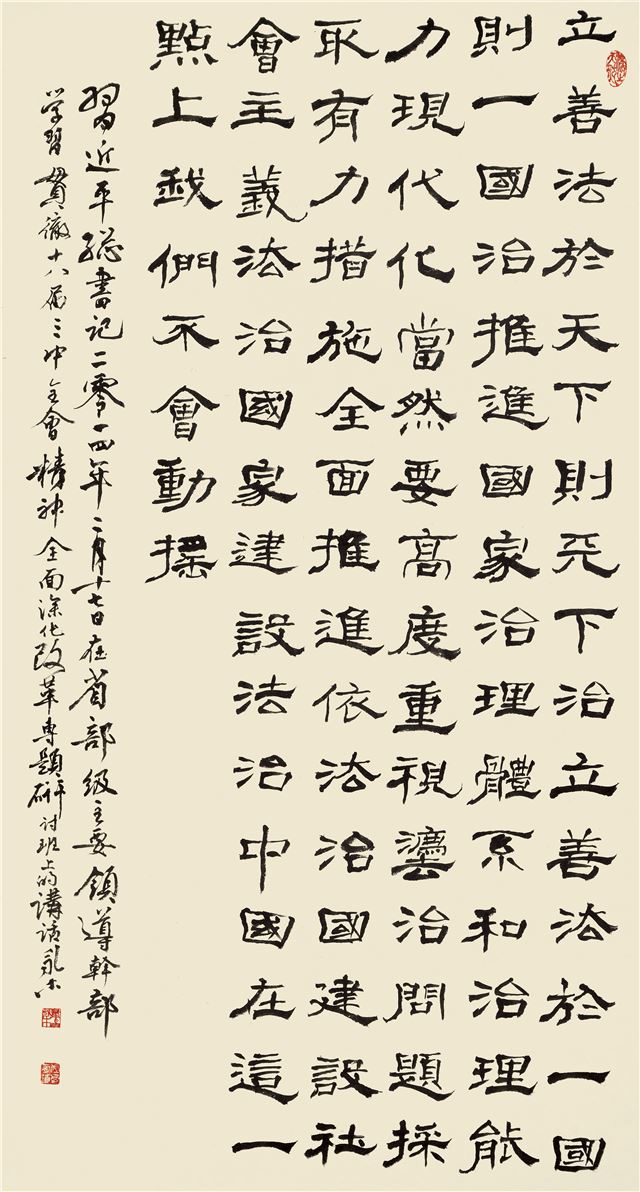 立善法於天下則天下治立善法於一國
則一國治推進國家治理體系和治理能
力現代化當然要高度重視灋治問題採
取有力措施全面推進依法治國建設社
會主義法治國家建設法治中國在這一
點上我們不會動搖
習近平總書記二零一四年二月十七日在省部級主要領導幹部
学習貫徹十八届三中全會精神全面深化改革專題研讨班上的講话